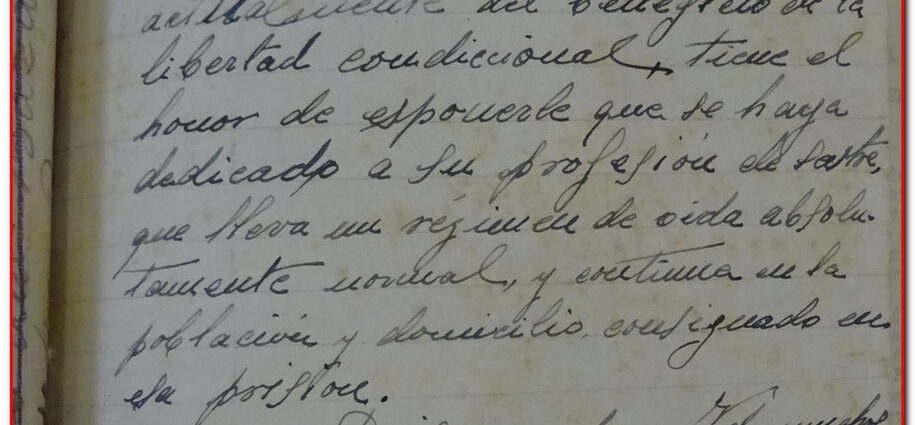 actualmente del beneficio de la
libertad condiccional, tiene el
honor de esponerle que se haya
dedicado a su profesión de sastre,
que lleva un régimen de vida absolu-
tamente normal, y continua en la
población y domicilio consignado en
esa prisión.
muchos